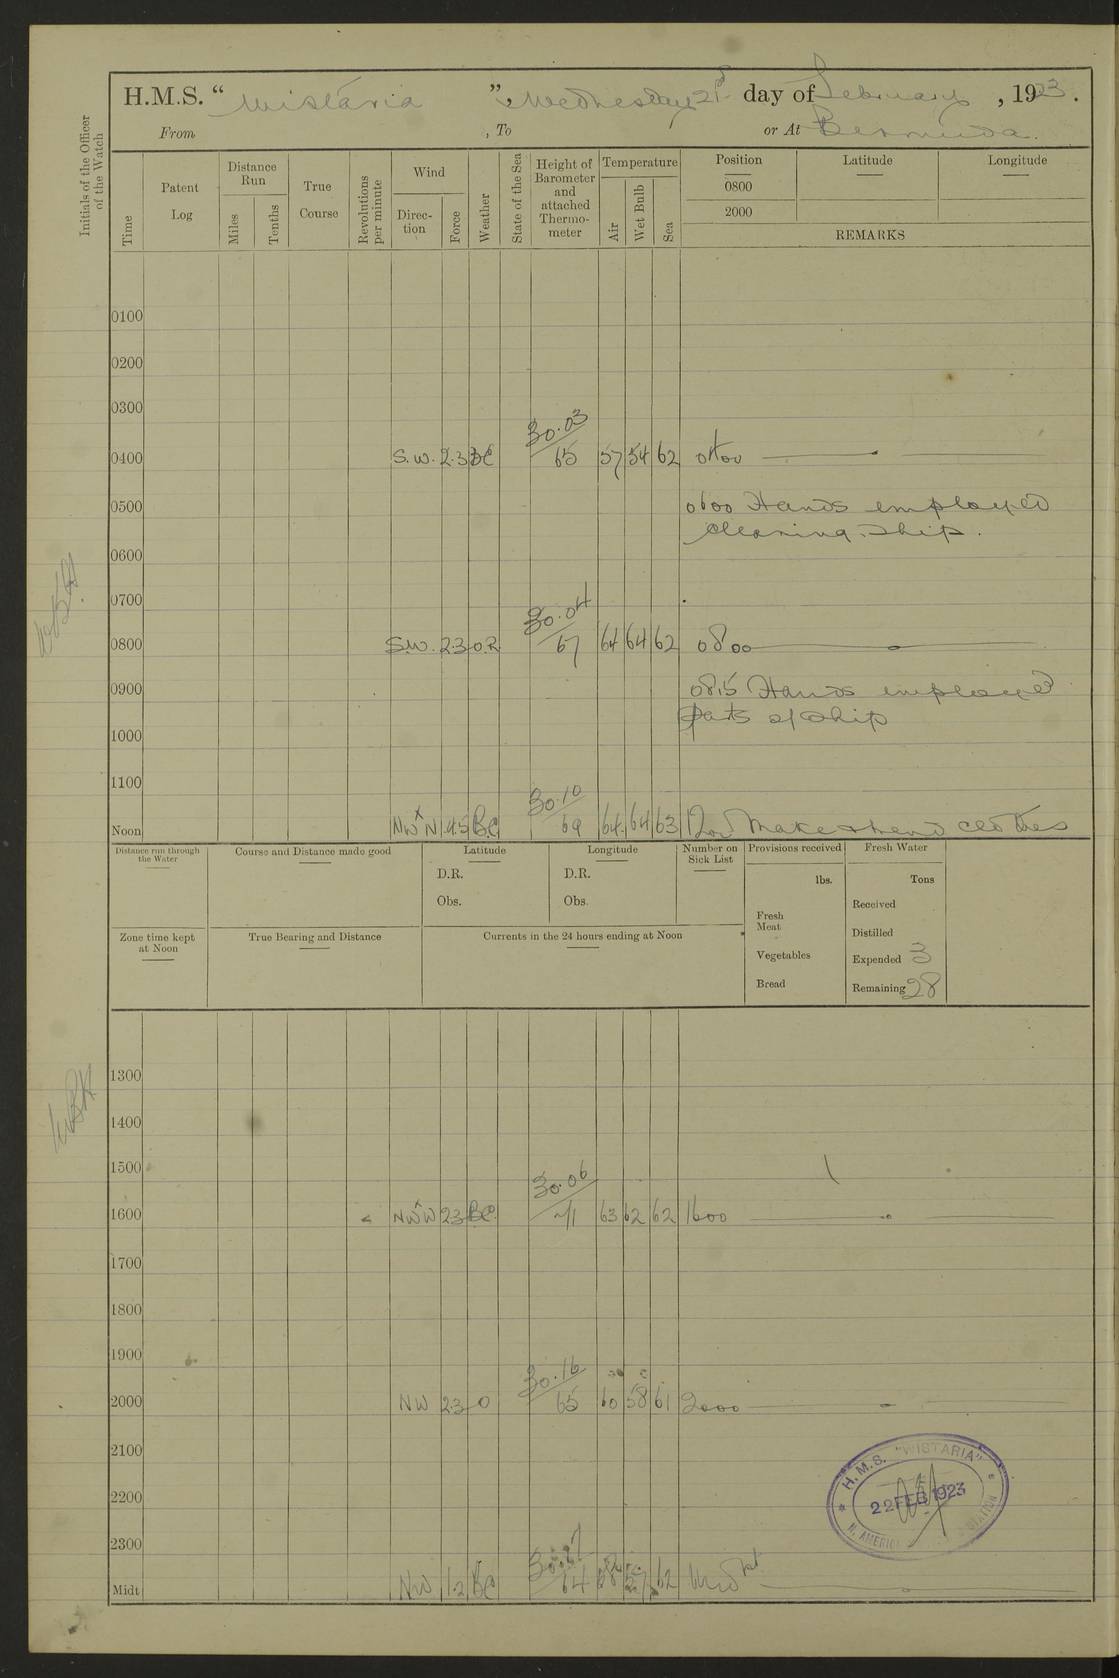 H.M.S. “ Wistaria ”, Wednesday 21st day of February, 1923.
From , To or At Bermuda.
Initials of the Officer of the Watch
Time
Patent Log
Distance Run
Miles
Tenths
True Course
Revolutions per minute
Wind
Direction
Force
Weather
State of the Sea
Height of Barometer and attached Thermometer
Temperature
Air
Wet Bulb
Sea
Position
0800
2000
Latitude
Longitude
REMARKS
0100
0200
0300
0400 S.W. 2.3 BC 30.03/65 57 54 62 0400
0500 0600 Hands employed
cleaning ship.
0600
0700
0800 S.W. 2.3 O.R. 30.04/67 64 64 62 0800
0900 0815 Hands employed
parts of ship
1000
1100
Noon NWxN 4.5 BC 30.10/69 64 64 63 Make & mend clothes
Distance run through the Water
Course and Distance made good
Latitude
D.R.
Obs.
Longitude
D.R.
Obs.
Number on Sick List
Provisions received
lbs.
Fresh Meat
Vegetables
Bread
Fresh Water
Tons
Received
Distilled
Expended 3
Remaining 28
Zone time kept at Noon
True Bearing and Distance
Currents in the 24 hours ending at Noon
1300
1400
1500
1600 NWxW 2.3 BC 30.06/71 63 62 62 1600
1700
1800
1900
2000 NW 2.3 O 30.16/65 60 58 61 2000
2100
2200
2300
Midt NW 1.2 BC 64 58 57 62 Midt
H.M.S. "WISTARIA"
22 FEB 1923
N. AMERICA STATION